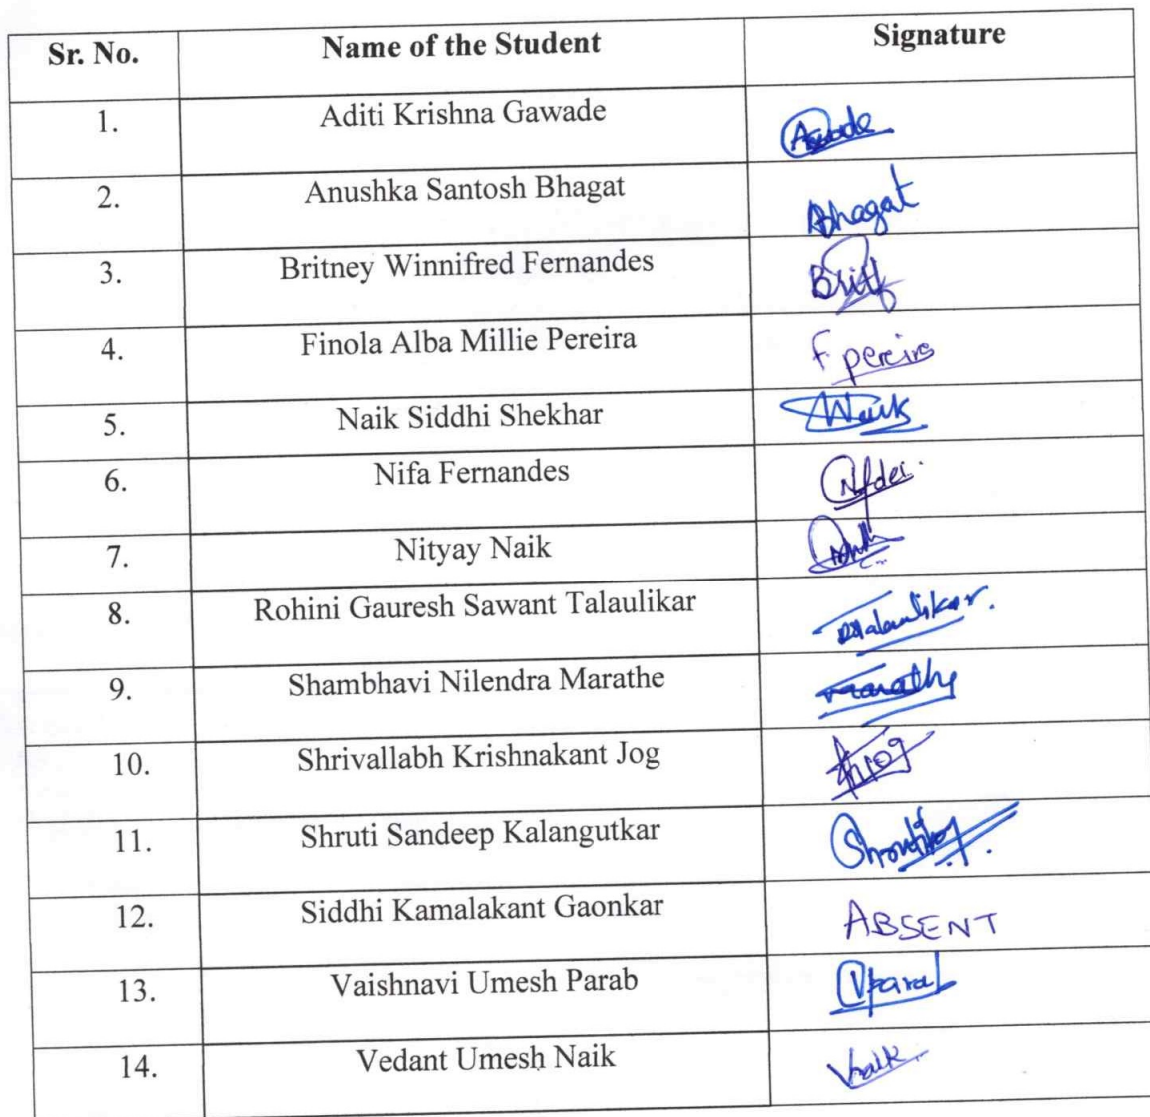 Sr. No. Name of the Student Signature
1. Aditi Krishna Gawade
2. Anushka Santosh Bhagat Abhagat
3. Britney Winnifred Fernandes
4. Finola Alba Millie Pereira F pereira
5. Naik Siddhi Shekhar
6. Nifa Fernandes
7. Nityay Naik
8. Rohini Gauresh Sawant Talaulikar
9. Shambhavi Nilendra Marathe
10. Shrivallabh Krishnakant Jog
11. Shruti Sandeep Kalangutkar
12. Siddhi Kamalakant Gaonkar ABSENT
13. Vaishnavi Umesh Parab VParab
14. Vedant Umesh Naik Vnaik